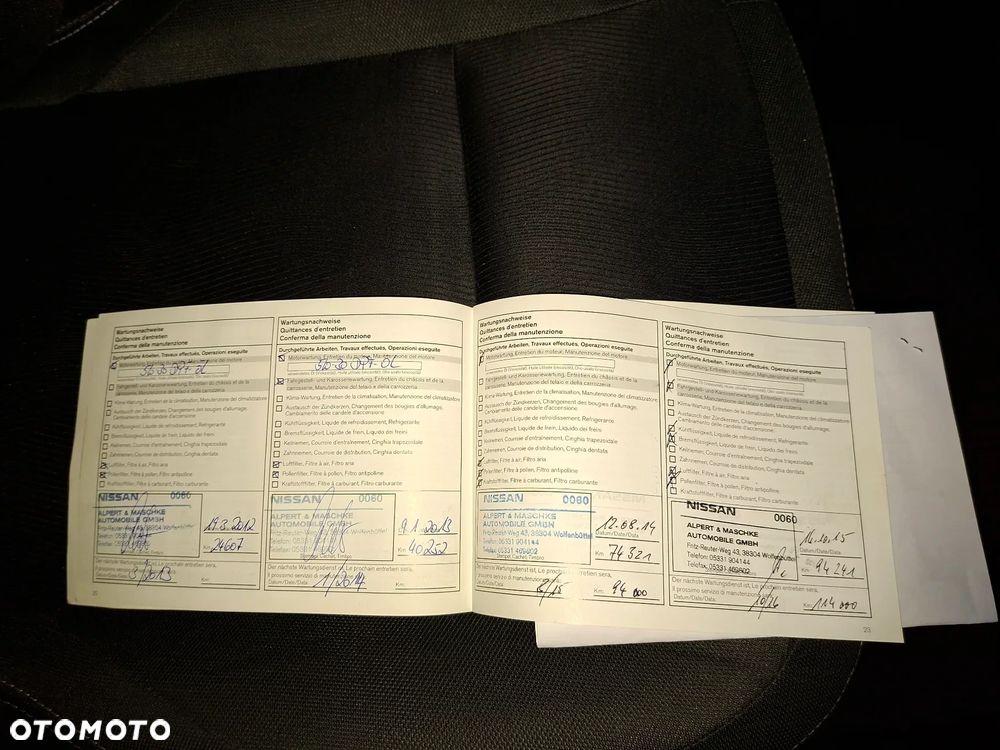 Wartungsnachweise
Quittances d'entretien
Conferma della manutenzione
Durchgeführte Arbeiten, Travaux effectués, Operazioni eseguite
Motorwartung, Entretien du moteur, Manutenzione del motore
5W-30 DPF-ÖL
Fahrgestell- und Karosseriewartung, Entretien du châssis et de la
carrosserie, Manutenzione del telaio e della carrozzeria
Klima-Wartung, Entretien de la climatisation, Manutenzione del climatizzatore
Austausch der Zündkerzen, Changement des bougies d'allumage,
Cambiamento delle candele d'accensione
Kühlflüssigkeit, Liquide de refroidissement, Refrigerante
Bremsflüssigkeit, Liquide de frein, Liquido dei freni
Keilriemen, Courroie d'entraînement, Cinghia trapezoidale
Zahnriemen, Courroie de distribution, Cinghia dentata
Luftfilter, Filtre à air, Filtro aria
Pollenfilter, Filtre à pollen, Filtro antipolline
Kraftstofffilter, Filtre à carburant, Filtro carburante
NISSAN 0060
ALPERT & MASCHKE
AUTOMOBILE GMBH
Fritz-Reuter-Weg 43, 38304 Wolfenbüttel
Telefon: 05331 904144
Telefax: 05331 469802
Datum/Date/Data
24607
Km:
Der nächste Wartungsdienst ist, Le prochain entretien sera,
Il prossimo servizio di manutenzione sarà
Datum/Date/Data: Km:
Wartungsnachweise
Quittances d'entretien
Conferma della manutenzione
Durchgeführte Arbeiten, Travaux effectués, Operazioni eseguite
Motorwartung, Entretien du moteur, Manutenzione del motore
5W-30 DPF-ÖL
Fahrgestell- und Karosseriewartung, Entretien du châssis et de la
carrosserie, Manutenzione del telaio e della carrozzeria
Klima-Wartung, Entretien de la climatisation, Manutenzione del climatizzatore
Austausch der Zündkerzen, Changement des bougies d'allumage,
Cambiamento delle candele d'accensione
Kühlflüssigkeit, Liquide de refroidissement, Refrigerante
Bremsflüssigkeit, Liquide de frein, Liquido dei freni
Keilriemen, Courroie d'entraînement, Cinghia trapezoidale
Zahnriemen, Courroie de distribution, Cinghia dentata
Luftfilter, Filtre à air, Filtro aria
Pollenfilter, Filtre à pollen, Filtro antipolline
Kraftstofffilter, Filtre à carburant, Filtro carburante
NISSAN 0060
ALPERT & MASCHKE
AUTOMOBILE GMBH
Fritz-Reuter-Weg 43, 38304 Wolfenbüttel
9.1.2013
40252
Stempel, Cachet, Timbro
Der nächste Wartungsdienst ist, Le prochain entretien sera,
Il prossimo servizio di manutenzione sarà
Datum/Date/Data: 1/2014 Km:
Wartungsnachweise
Quittances d'entretien
Conferma della manutenzione
Durchgeführte Arbeiten, Travaux effectués, Operazioni eseguite
Motorwartung, Entretien du moteur, Manutenzione del motore
Fahrgestell- und Karosseriewartung, Entretien du châssis et de la
carrosserie, Manutenzione del telaio e della carrozzeria
Klima-Wartung, Entretien de la climatisation, Manutenzione del climatizzatore
Austausch der Zündkerzen, Changement des bougies d'allumage,
Cambiamento delle candele d'accensione
Kühlflüssigkeit, Liquide de refroidissement, Refrigerante
Bremsflüssigkeit, Liquide de frein, Liquido dei freni
Keilriemen, Courroie d'entraînement, Cinghia trapezoidale
Zahnriemen, Courroie de distribution, Cinghia dentata
Luftfilter, Filtre à air, Filtro aria
Pollenfilter, Filtre à pollen, Filtro antipolline
Kraftstofffilter, Filtre à carburant, Filtro carburante
NISSAN 0060
ALPERT & MASCHKE
AUTOMOBILE GMBH
Fritz-Reuter-Weg 43, 38304 Wolfenbüttel
Telefon: 05331 904144
Telefax: 05331 469802
Stempel, Cachet, Timbro
12.08.14
Datum/Date/Data
74321
Km:
Der nächste Wartungsdienst ist, Le prochain entretien sera,
Il prossimo servizio di manutenzione sarà
Datum/Date/Data: 8/15 Km: 94 000
Wartungsnachweise
Quittances d'entretien
Conferma della manutenzione
Durchgeführte Arbeiten, Travaux effectués, Operazioni eseguite
Motorwartung, Entretien du moteur, Manutenzione del motore
Fahrgestell- und Karosseriewartung, Entretien du châssis et de la
carrosserie, Manutenzione del telaio e della carrozzeria
Klima-Wartung, Entretien de la climatisation, Manutenzione del climatizzatore
Austausch der Zündkerzen, Changement des bougies d'allumage,
Cambiamento delle candele d'accensione
Kühlflüssigkeit, Liquide de refroidissement, Refrigerante
Bremsflüssigkeit, Liquide de frein, Liquido dei freni
Keilriemen, Courroie d'entraînement, Cinghia trapezoidale
Zahnriemen, Courroie de distribution, Cinghia dentata
Luftfilter, Filtre à air, Filtro aria
Pollenfilter, Filtre à pollen, Filtro antipolline
Kraftstofffilter, Filtre à carburant, Filtro carburante
NISSAN 0060
ALPERT & MASCHKE
AUTOMOBILE GMBH
Fritz-Reuter-Weg 43, 38304 Wolfenbüttel
Telefon: 05331 904144
Telefax: 05331 469802
Datum/Date/Data
94241
Km:
Der nächste Wartungsdienst ist, Le prochain entretien sera,
Il prossimo servizio di manutenzione sarà
Datum/Date/Data: 10/16 Km: 114 000
23
OTOMOTO